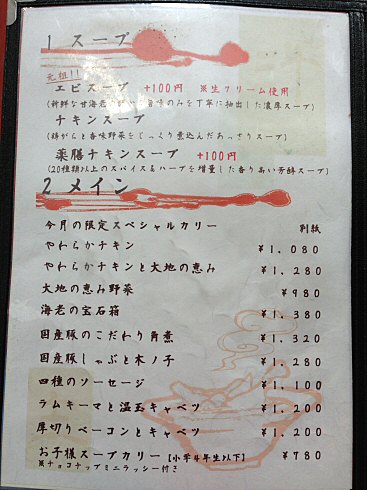 1 スープ
元祖!!
エビスープ +100円 ※生クリーム使用
(新鮮な甘海老の 旨味のみを丁寧に抽出した濃厚スープ)
チキンスープ
(鶏がらと香味野菜をじっくり煮込んだあっさりスープ)
薬膳チキンスープ +100円
(20種類以上のスパイス&ハーブを増量した香り高い芳醇スープ)
2 メイン
今月の限定スペシャルカリー 別紙
やわらかチキン ¥1,080
やわらかチキンと大地の恵み ¥1,280
大地の恵み野菜 ¥980
海老の宝石箱 ¥1,380
国産豚のこだわり角煮 ¥1,320
国産豚しゃぶと木ノ子 ¥1,280
四種のソーセージ ¥1,100
ラムキーマと温玉キャベツ ¥1,200
厚切りベーコンとキャベツ ¥1,200
お子様スープカリー【小学4年生以下】 ¥780
※チョコナップミニラッシー付き